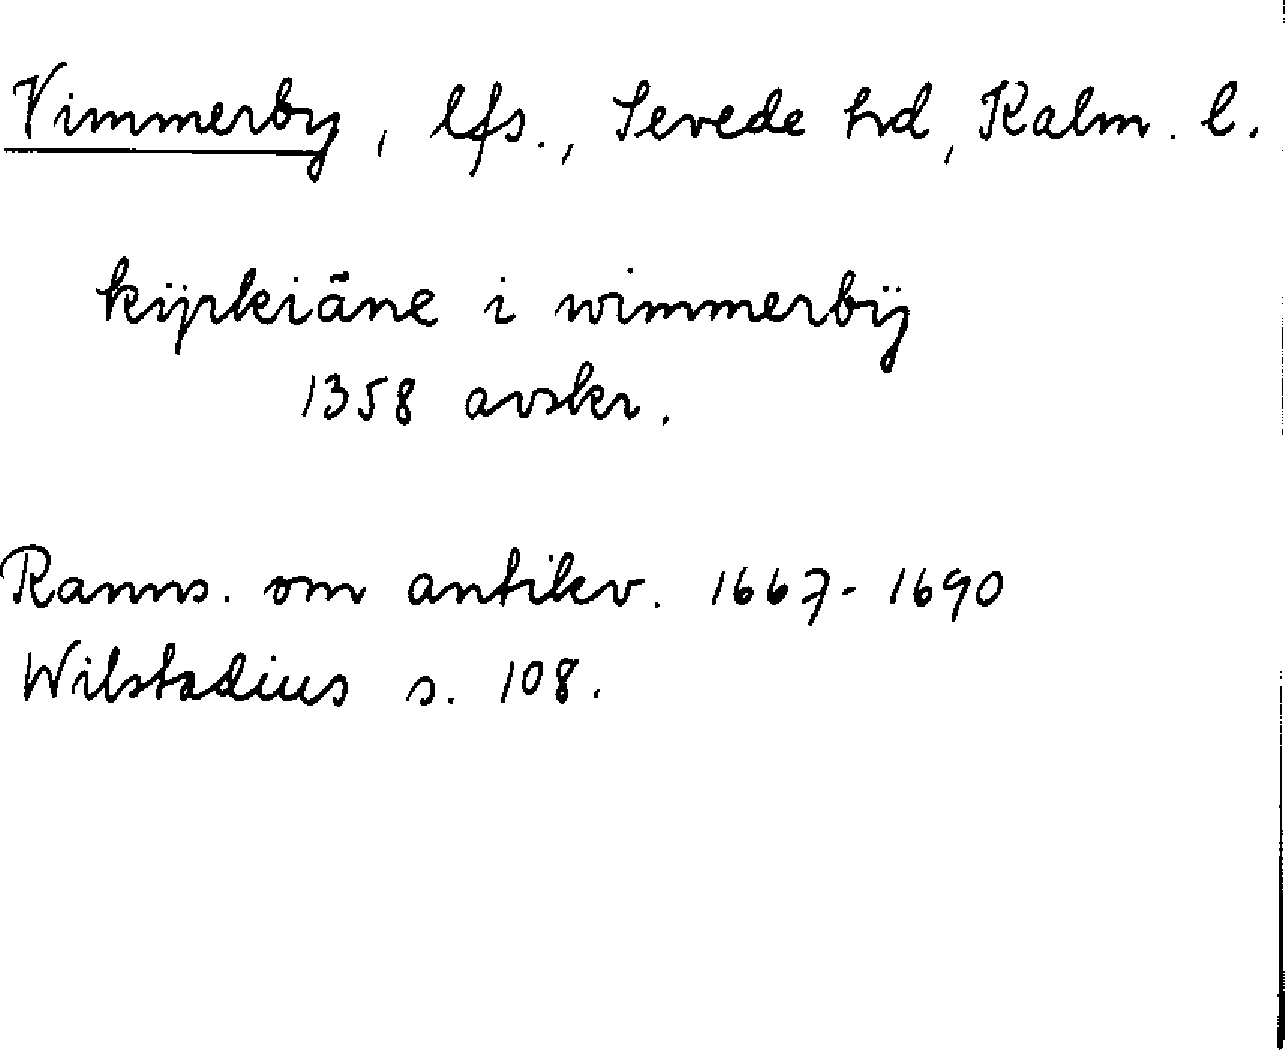 Vimmerby, lfs., Sevede hd, Kalm. l.
kijrkiäne i wimmerbÿ
1358 avskr.
Ranns. om antikv. 1667-1690
Wilstadius s. 108.